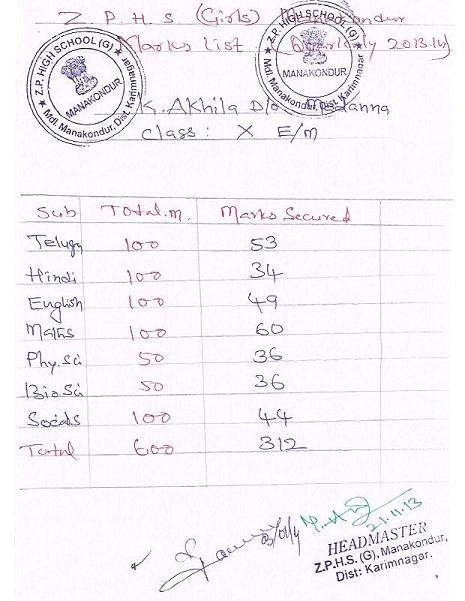 Z. P. H. S (Girls) Manakondur
Marks List (Quarterly 2013.14)
Z.P. HIGH SCHOOL (G)
MANAKONDUR
Mdl. Manakondur, Dist. Karimnagar
Z.P. HIGH SCHOOL (G)
MANAKONDUR
Mdl. Manakondur, Dist. Karimnagar
K. Akhila D/o. Madanna
Class: X E/m
Sub Total.m. Marks Secured
Telugu 100 53
Hindi 100 34
English 100 49
Maths 100 60
Phy.Sci 50 36
Bio.Sci 50 36
Socials 100 44
Total 600 312
21.11.13
HEADMASTER
Z.P.H.S. (G), Manakondur,
Dist: Karimnagar.